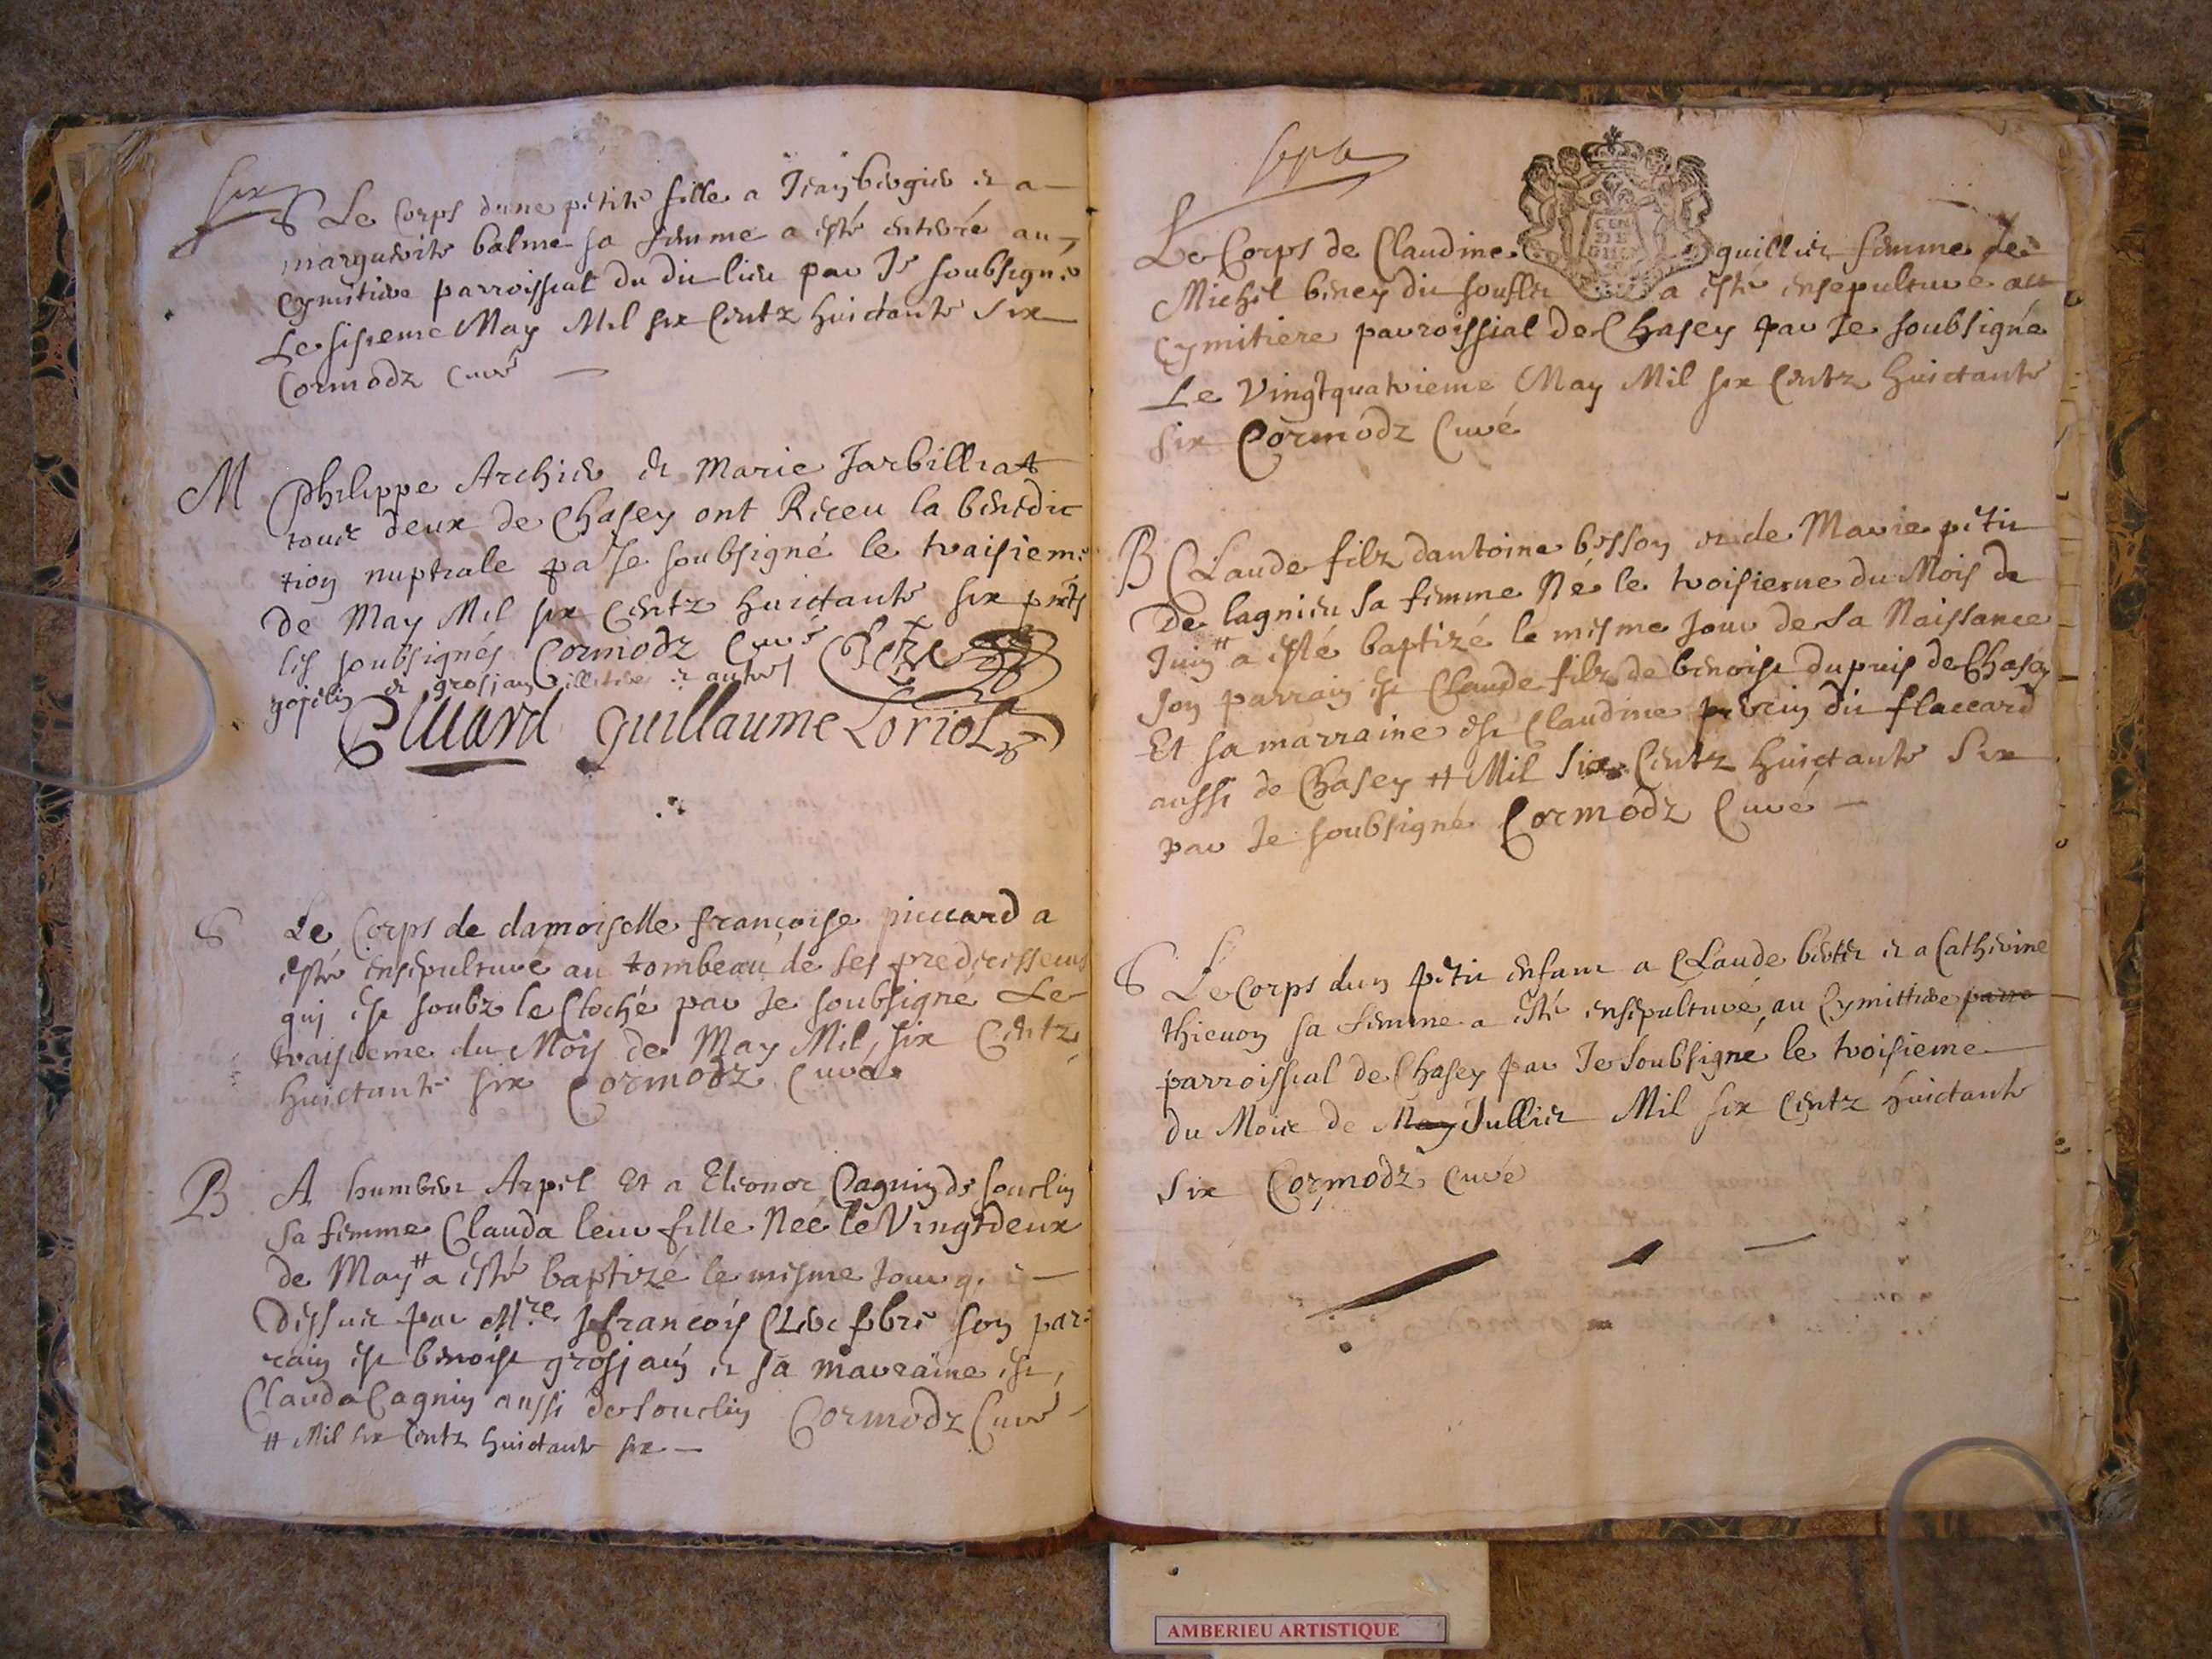 six
S Le Corps dune petite fille a Jean bergier et a
marguerite balme sa femme a esté enterré au
Cymitiere parroissial du dit lieu par Je soubsigné
Le sisieme May Mil six Centz huictante six
Cormodz Curé
M Philippe Archier et Marie Jarbilliat
touts deux de Chasey ont Receu la bénédic
tion nuptiale par Je soubsigné le troisieme
de May Mil six Centz huictante six pnts
les soubsignés Cormodz Curé
gojelin et grosjan illiteres et autres
Guillaume Loriol
S Le Corps de damoiselle françoise piccard a
esté ensepulturé au tombeau de ses predecesseurs
qui est soubz le Cloché par Je soubsigné Le
troisieme du Mois de May Mil six Centz
huictante six Cormodz Curé
B A humbert Arpel Et a Eleonor Cagnin de souclin
sa femme Clauda leur fille Née le Vingtdeux
de May # a esté baptizé le mesme Jour q.
dessus par Mre françois son par
rain est benoist grosjan et sa marraine est
Clauda Cagnin aussi de souclin Cormodz Curé
# Mil six Centz huictante six
sept
Le Corps de Claudine quillier femme de
Michel beney dit souflet a esté ensepulturé au
Cymitiere parroissial de Chasey par Je soubsigné
Le Vingtquatrieme May Mil six Centz huictante
six Cormodz Curé
B Claude filz dantoine besson et de Marie petit
De lagnieu sa femme Né le troisieme du Mois de
Juin # a esté baptizé le mesme Jour de sa Naissance
son parrain est Claude filz de benoist dupuis de Chasey
Et sa marraine est Claudine perrin dit flaccard
aussi de Chasey # Mil six Centz huictante six
par Je soubsigné Cormodz Curé
S Le Corps dun petit enfant a Claude bertet et a Catherine
thievon sa femme a esté ensepulturé au Cymittiere parro
parroissial de Chasey par Je soubsigné le troisieme
du Mois de May Jullier Mil six Centz huictante
six Cormodz Curé
AMBERIEU ARTISTIQUE